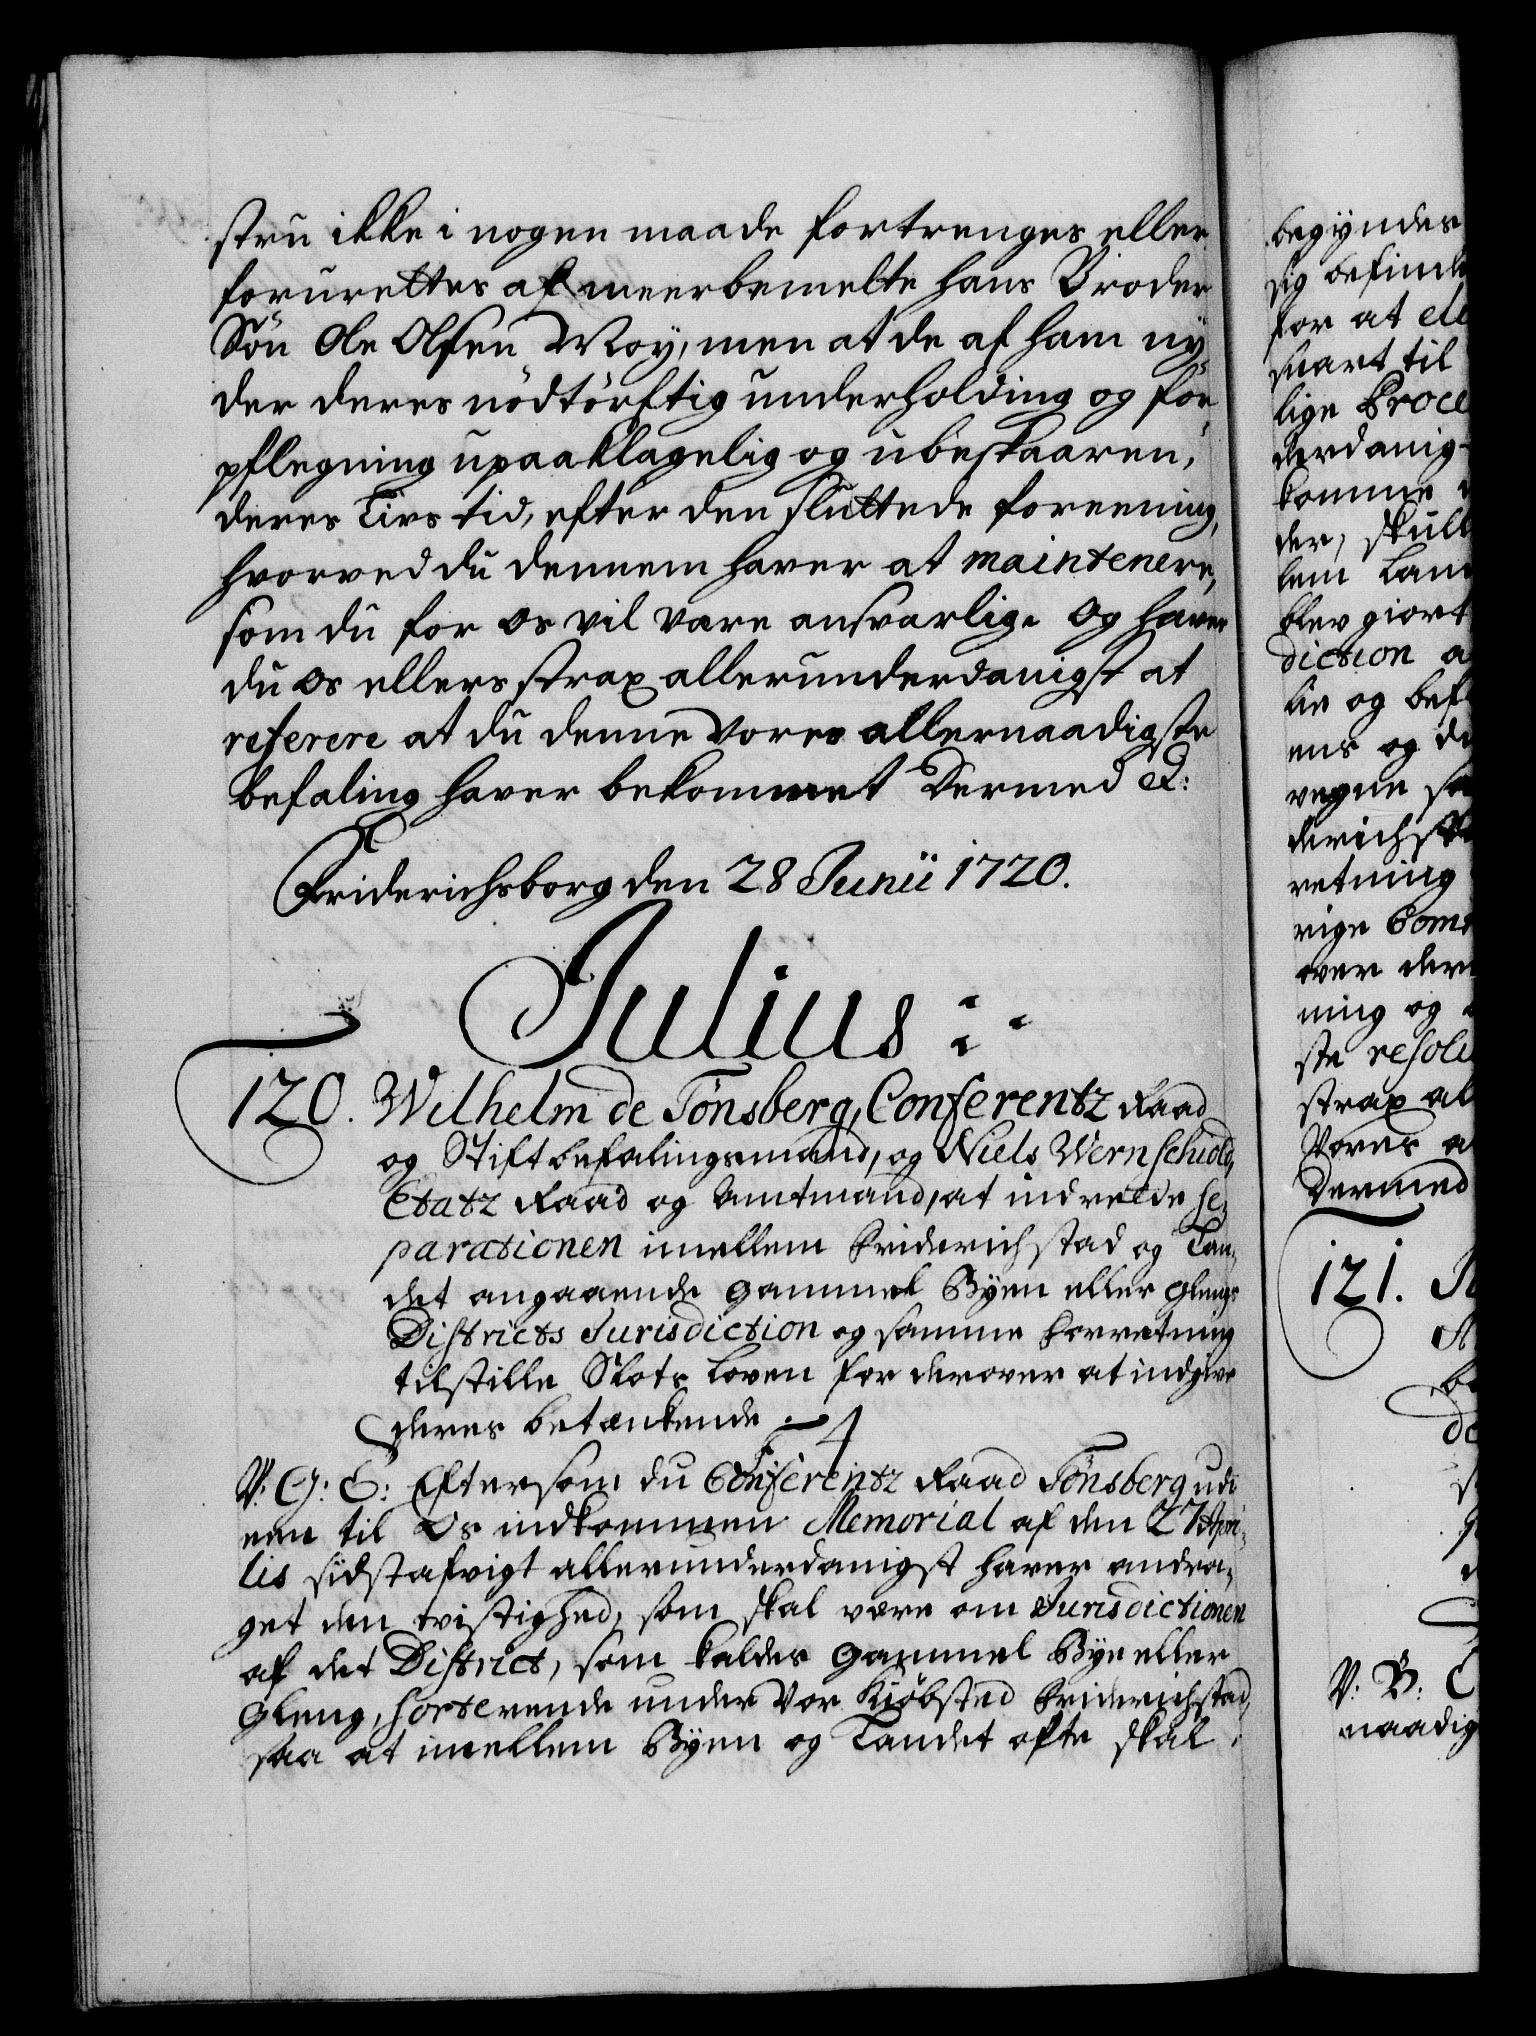 stru ikke i nogen maade fortrenges eller
forurettes af meerbemelte hans Broder
Sön Ole Olsen Moy, men at de af ham ny-
der deres nödtörftig underholding og for-
pflegning upaaklagelig og ubeskaaren,
deres Livs tid, efter den sluttede foreening,
hvorved du dennem haver at maintenere,
som du for os vil være ansvarlig. Og haver
du os ellers strax allerunderdanigst at
referere at du denne Vores allernaadigste
befaling haver bekommet Dermed &:
Friderichsborg den 28 Junii 1720.
Julius:
120. Wilhelm de Tönsberg, Conferentz Raad
og Stiftbefalingsmand, og Niels Wernschiold,
Etatz Raad og Amtmand, at indrette se-
parationen imellem Friderichstad og Lan-
det angaaende Gammel Byen eller Glengs
Districts Jurisdiction og samme Forretning
tilstille Slots Loven for derover at indgive
deres betænkende.
V: G: T: Eftersom du Conferentz Raad Tönsberg udi
een til Os indkommen Memorial af den 27 Apri-
lis sidst afvigt allerunderdanigst haver andra-
get den tvistighed, som skal være om Jurisdictionen
af det District, som kaldes Gammel Bye eller
Gleng, Sorterende under Vor Kiöbsted Friderichstad,
saa at imellem Byen og Landet ofte skal
begyndes
sig befinde
for at
svart til
lige Proce
derdanig-
komme
der, skull
lem Lan
blev giort
diction a
lie og bef
ens og de
vegne sa
derichst
retning
rige Com
over der
ning og
ste resolu
strax al
Vores a
Dermed
121.
V: B:
naadig